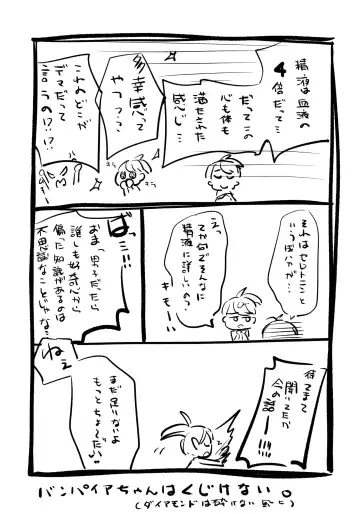 精液は血液の
4
倍だって…
だってこの
心も体も
満たされた
感じ…
多幸感って
やつ？？
これのどこが
デマだって
言うの!?!?
それはセロトニンと
いうぼいかが…
えっ
てか何でそんなに
精液に詳しいの？
キモ——
ばっ…!!!
おまっ男子だったら
誰しも好奇心から
偏った知識があるのは
不思議なことじゃな…
待てまて
聞いてたか
今の話———!!!!
ねぇ
まだ足いないよ
もっとちょーだい
バンパイアちゃんはくじけない。
(ダイアモンドは砕けない的に)